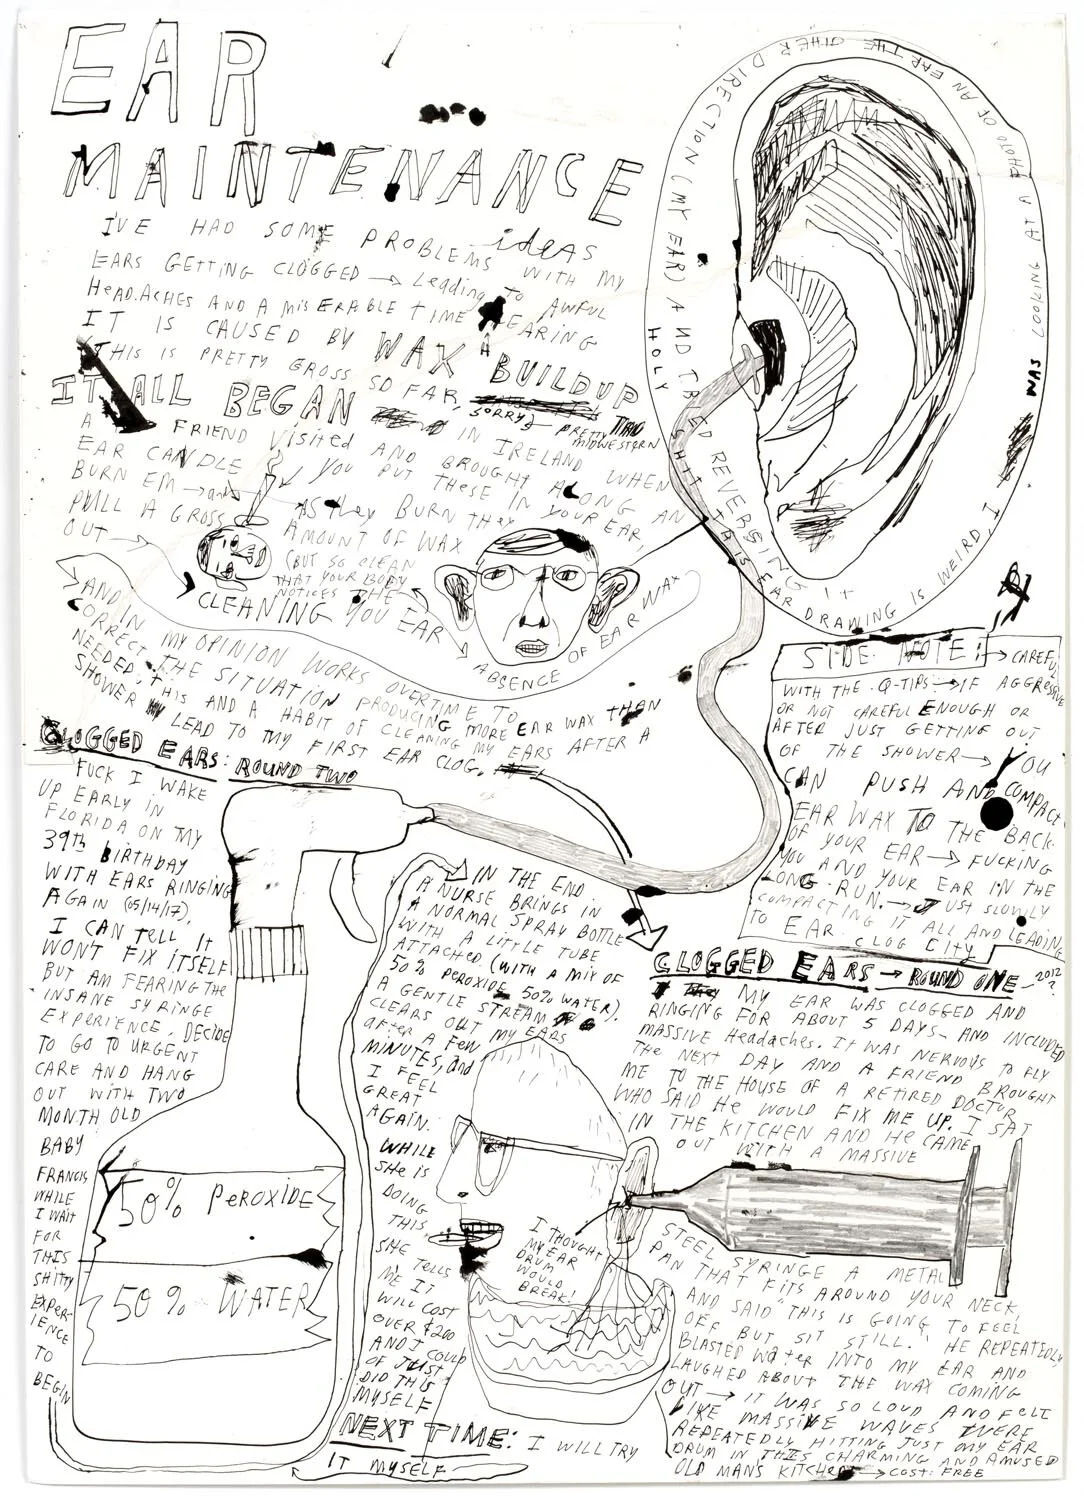 EAR
MAINTENANCE
ideas
I'VE HAD SOME PROBLEMS WITH MY
EARS GETTING CLOGGED → Leading to AWFUL
HEADACHES AND A MISERABLE TIME HEARING
IT IS CAUSED BY WAX BUILDUP
THIS IS PRETTY GROSS SO FAR, SORRY
PRETTY MIDWESTERN
IT ALL BEGAN IN IRELAND WHEN
A FRIEND VISITED AND BROUGHT ALONG AN
EAR CANDLE YOU PUT THESE IN YOUR EAR,
BURN EM → and AS they BURN THEY
PULL A GROSS AMOUNT OF WAX
OUT → (BUT SO CLEAN
THAT YOUR BODY
NOTICES THE
CLEANING YOU EAR
ABSENCE OF EAR WAX
AND IN MY OPINION WORKS OVERTIME TO
CORRECT THE SITUATION PRODUCING MORE EAR WAX THAN
NEEDED. THIS AND A HABIT OF CLEANING MY EARS AFTER A
SHOWER LEAD TO MY FIRST EAR CLOG.
HOLY SHIT THIS EAR DRAWING IS WEIRD, I
WAS LOOKING AT A PHOTO OF AN EAR THE OTHER DIRECTION (MY EAR) AND TRIED REVERSING IT
SIDE NOTE: → CAREFUL
WITH THE Q-TIPS → IF AGGRESSIVE
OR NOT CAREFUL ENOUGH OR
AFTER JUST GETTING OUT
OF THE SHOWER → YOU
CAN PUSH AND COMPACT
EAR WAX TO THE BACK
OF YOUR EAR → FUCKING
YOU AND YOUR EAR IN THE
LONG RUN. → JUST SLOWLY
COMPACTING IT ALL AND LEADING
TO EAR CLOG CITY
CLOGGED EARS → ROUND ONE - 2012?
MY EAR WAS CLOGGED AND
RINGING FOR ABOUT 5 DAYS - AND INCLUDED
MASSIVE HEADACHES. IT WAS NERVOUS TO FLY
THE NEXT DAY AND A FRIEND BROUGHT
ME TO THE HOUSE OF A RETIRED DOCTOR
WHO SAID HE WOULD FIX ME UP. I SAT
IN THE KITCHEN AND HE CAME
OUT WITH A MASSIVE
STEEL SYRINGE A METAL
PAN THAT FITS AROUND YOUR NECK,
AND SAID "THIS IS GOING TO FEEL
OFF BUT SIT STILL." HE REPEATEDLY
BLASTED WATER INTO MY EAR AND
LAUGHED ABOUT THE WAX COMING
OUT → IT WAS SO LOUD AND FELT
LIKE MASSIVE WAVES WERE
REPEATEDLY HITTING JUST MY EAR
DRUM IN THIS CHARMING AND AMUSED
OLD MAN'S KITCHEN → COST: FREE
I THOUGHT
MY EAR
DRUM
WOULD
BREAK!
CLOGGED EARS: ROUND TWO
FUCK I WAKE
UP EARLY IN
FLORIDA ON MY
39th BIRTHDAY
WITH EARS RINGING
AGAIN (05/14/17),
I CAN TELL IT
WON'T FIX ITSELF
BUT AM FEARING THE
INSANE SYRINGE
EXPERIENCE. DECIDE
TO GO TO URGENT
CARE AND HANG
OUT WITH TWO
MONTH OLD
BABY
FRANCIS
WHILE
I WAIT
FOR
THIS
SHITTY
EXPER-
IENCE
TO
BEGIN
50% PEROXIDE
50% WATER
IN THE END
A NURSE BRINGS IN
A NORMAL SPRAY BOTTLE
WITH A LITTLE TUBE
ATTACHED. (WITH A MIX OF
50% PEROXIDE 50% WATER).
A GENTLE STREAM
CLEARS OUT MY EARS
AFTER A FEW
MINUTES, and
I FEEL
GREAT
AGAIN.
WHILE
SHE IS
DOING
THIS
SHE TELLS
ME IT
WILL COST
OVER $200
AND I COULD
OF JUST
DID THIS
MYSELF
NEXT TIME: I WILL TRY
IT MYSELF